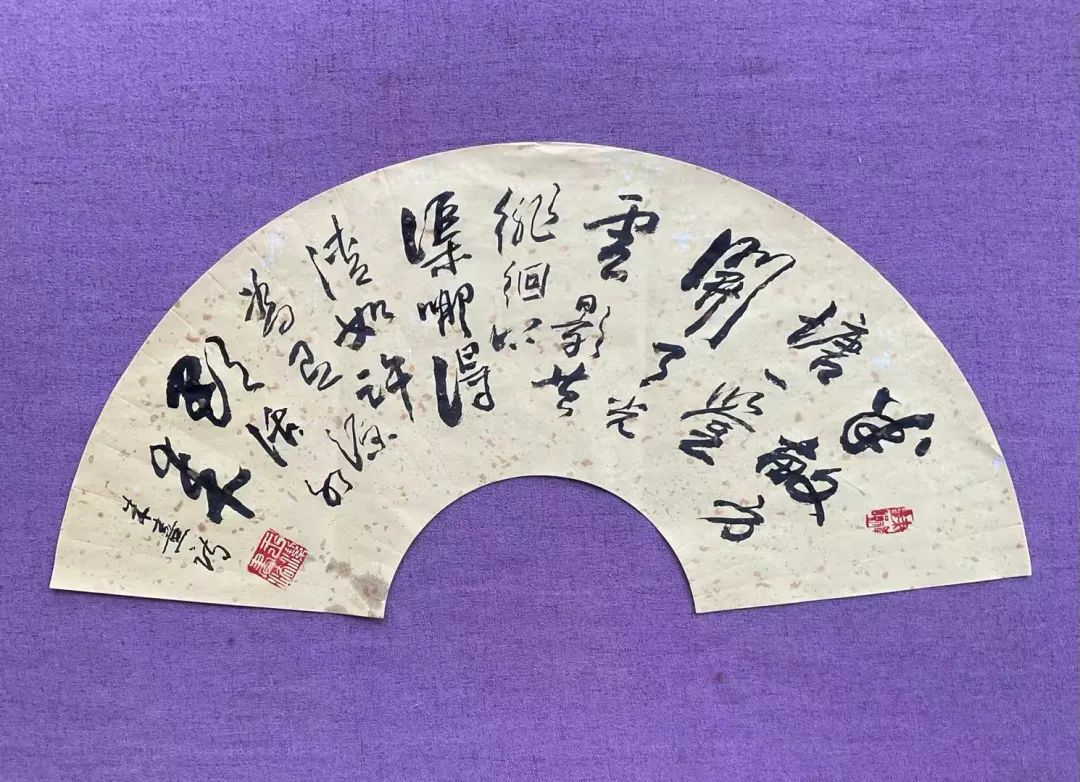 半畝方
塘一鑒
開天光
雲影共
徘徊問
渠哪得
清如許
為有源
頭活水
來
朱熹詩